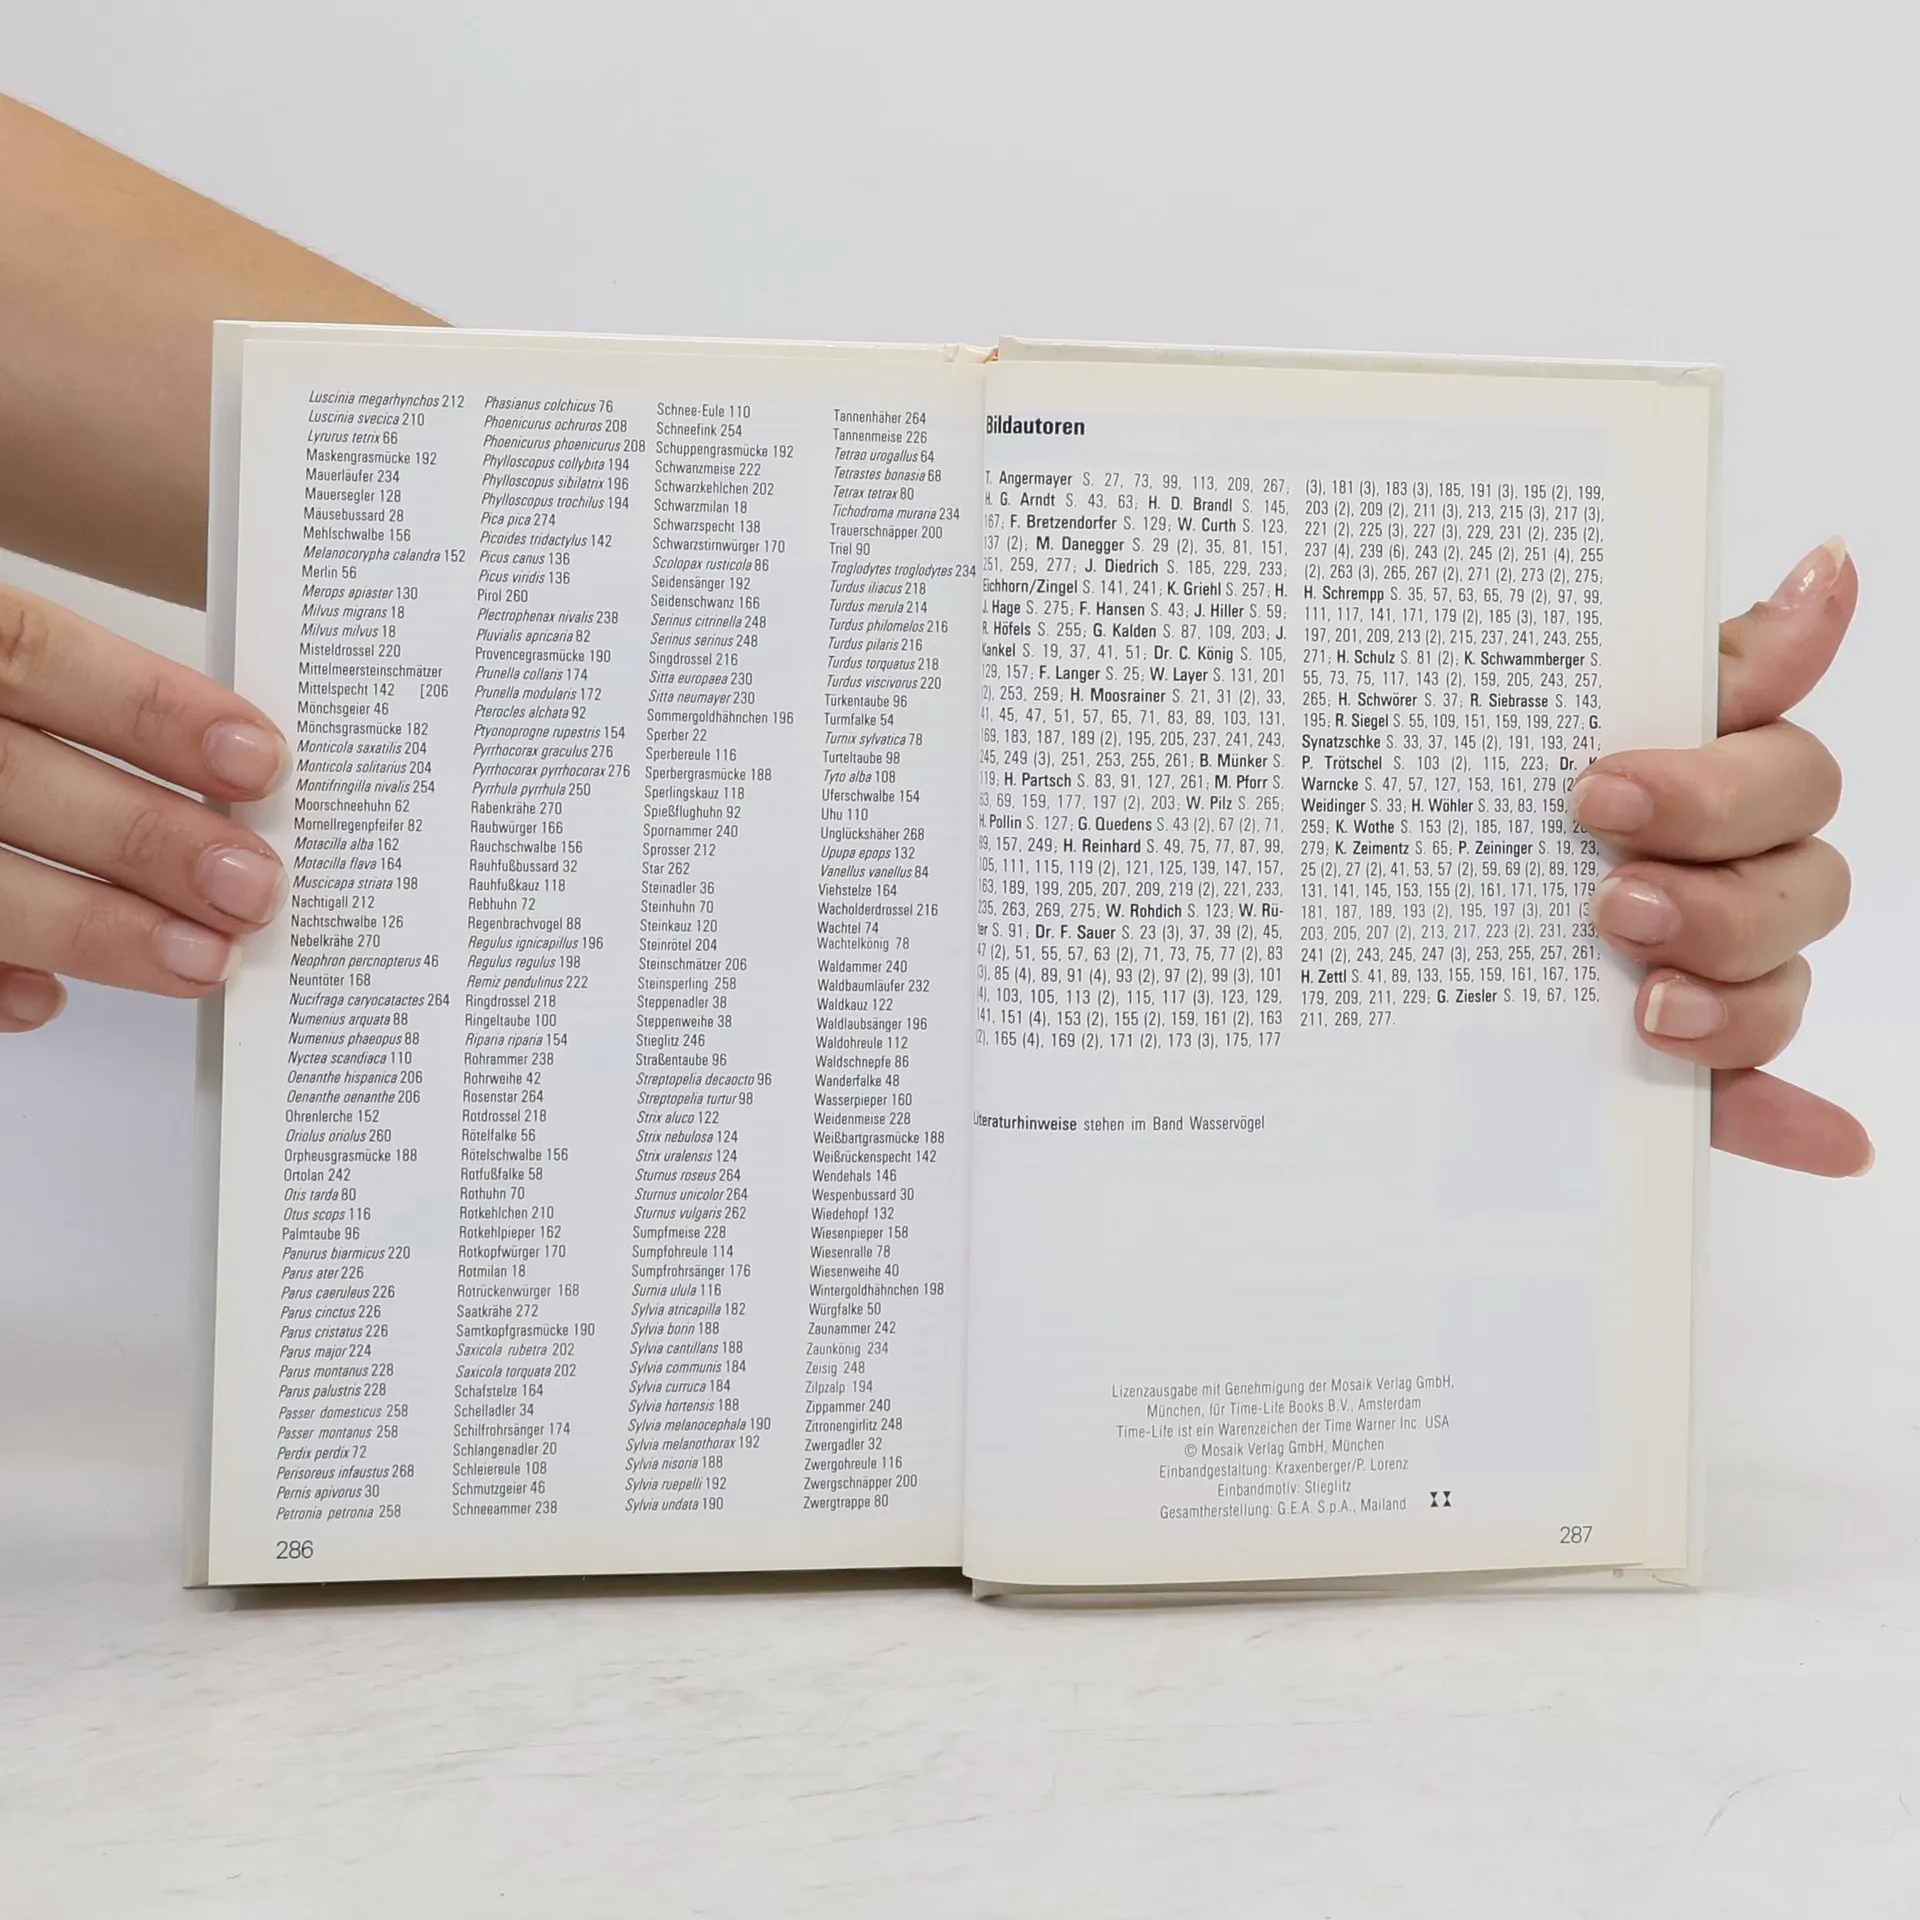 Luscinia megarhynchos 212
Luscinia svecica 210
Lyrurus tetrix 66
Maskengrasmücke 192
Mauerläufer 234
Mauersegler 128
Mäusebussard 28
Mehlschwalbe 156
Melanocorypha calandra 152
Merlin 56
Merops apiaster 130
Milvus migrans 18
Milvus milvus 18
Misteldrossel 220
Mittelmeersteinschmätzer
Mittelspecht 142 [206
Mönchsgeier 46
Mönchsgrasmücke 182
Monticola saxatilis 204
Monticola solitarius 204
Montifringilla nivalis 254
Moorschneehuhn 62
Mornellregenpfeifer 82
Motacilla alba 162
Motacilla flava 164
Muscicapa striata 198
Nachtigall 212
Nachtschwalbe 126
Nebelkrähe 270
Neophron percnopterus 46
Neuntöter 168
Nucifraga caryocatactes 264
Numenius arquata 88
Numenius phaeopus 88
Nyctea scandiaca 110
Oenanthe hispanica 206
Oenanthe oenanthe 206
Ohrenlerche 152
Oriolus oriolus 260
Orpheusgrasmücke 188
Ortolan 242
Otis tarda 80
Otus scops 116
Palmtaube 96
Panurus biarmicus 220
Parus ater 226
Parus caeruleus 226
Parus cinctus 226
Parus cristatus 226
Parus major 224
Parus montanus 228
Parus palustris 228
Passer domesticus 258
Passer montanus 258
Perdix perdix 72
Perisoreus infaustus 268
Pernis apivorus 30
Petronia petronia 258
Phasianus colchicus 76
Phoenicurus ochruros 208
Phoenicurus phoenicurus 208
Phylloscopus collybita 194
Phylloscopus sibilatrix 196
Phylloscopus trochilus 194
Pica pica 274
Picoides tridactylus 142
Picus canus 136
Picus viridis 136
Pirol 260
Plectrophenax nivalis 238
Pluvialis apricaria 82
Provencegrasmücke 190
Prunella collaris 174
Prunella modularis 172
Pterocles alchata 92
Ptyonoprogne rupestris 154
Pyrrhocorax graculus 276
Pyrrhocorax pyrrhocorax 276
Pyrrhula pyrrhula 250
Rabenkrähe 270
Raubwürger 166
Rauchschwalbe 156
Rauhfußbussard 32
Rauhfußkauz 118
Rebhuhn 72
Regenbrachvogel 88
Regulus ignicapillus 196
Regulus regulus 198
Remiz pendulinus 222
Ringdrossel 218
Ringeltaube 100
Riparia riparia 154
Rohrammer 238
Rohrweihe 42
Rosenstar 264
Rotdrossel 218
Rötelfalke 56
Rötelschwalbe 156
Rotfußfalke 58
Rothuhn 70
Rotkehlchen 210
Rotkehlpieper 162
Rotkopfwürger 170
Rotmilan 18
Rotrückenwürger 168
Saatkrähe 272
Samtkopfgrasmücke 190
Saxicola rubetra 202
Saxicola torquata 202
Schafstelze 164
Schelladler 34
Schilfrohrsänger 174
Schlangenadler 20
Schleiereule 108
Schmutzgeier 46
Schneeammer 238
Schnee-Eule 110
Schneefink 254
Schuppengrasmücke 192
Schwanzmeise 222
Schwarzkehlchen 202
Schwarzmilan 18
Schwarzspecht 138
Schwarzstirnwürger 170
Scolopax rusticola 86
Seidensänger 192
Seidenschwanz 166
Serinus citrinella 248
Serinus serinus 248
Singdrossel 216
Sitta europaea 230
Sitta neumayer 230
Sommergoldhähnchen 196
Sperber 22
Sperbereule 116
Sperbergrasmücke 188
Sperlingskauz 118
Spießflughuhn 92
Spornammer 240
Sprosser 212
Star 262
Steinadler 36
Steinhuhn 70
Steinkauz 120
Steinrötel 204
Steinschmätzer 206
Steinsperling 258
Steppenadler 38
Steppenweihe 38
Stieglitz 246
Straßentaube 96
Streptopelia decaocto 96
Streptopelia turtur 98
Strix aluco 122
Strix nebulosa 124
Strix uralensis 124
Sturnus roseus 264
Sturnus unicolor 264
Sturnus vulgaris 262
Sumpfmeise 228
Sumpfohreule 114
Sumpfrohrsänger 176
Surnia ulula 116
Sylvia atricapilla 182
Sylvia borin 188
Sylvia cantillans 188
Sylvia communis 184
Sylvia curruca 184
Sylvia hortensis 188
Sylvia melanocephala 190
Sylvia melanothorax 192
Sylvia nisoria 188
Sylvia ruepelli 192
Sylvia undata 190
Tannenhäher 264
Tannenmeise 226
Tetrao urogallus 64
Tetrastes bonasia 68
Tetrax tetrax 80
Tichodroma muraria 234
Trauerschnäpper 200
Triel 90
Troglodytes troglodytes 234
Turdus iliacus 218
Turdus merula 214
Turdus philomelos 216
Turdus pilaris 216
Turdus torquatus 218
Turdus viscivorus 220
Türkentaube 96
Turmfalke 54
Turnix sylvatica 78
Turteltaube 98
Tyto alba 108
Uferschwalbe 154
Uhu 110
Unglückshäher 268
Upupa epops 132
Vanellus vanellus 84
Viehstelze 164
Wacholderdrossel 216
Wachtel 74
Wachtelkönig 78
Waldammer 240
Waldbaumläufer 232
Waldkauz 122
Waldlaubsänger 196
Waldohreule 112
Waldschnepfe 86
Wanderfalke 48
Wasserpieper 160
Weidenmeise 228
Weißbartgrasmücke 188
Weißrückenspecht 142
Wendehals 146
Wespenbussard 30
Wiedehopf 132
Wiesenpieper 158
Wiesenralle 78
Wiesenweihe 40
Wintergoldhähnchen 198
Würgfalke 50
Zaunammer 242
Zaunkönig 234
Zeisig 248
Zilpzalp 194
Zippammer 240
Zitronengirlitz 248
Zwergadler 32
Zwergohreule 116
Zwergschnäpper 200
Zwergtrappe 80
286
Bildautoren
T. Angermayer S. 27, 73, 99, 113, 209, 267;
H. G. Arndt S. 43, 63; H. D. Brandl S. 145,
167; F. Bretzendorfer S. 129; W. Curth S. 123,
137 (2); M. Danegger S. 29 (2), 35, 81, 151,
251, 259, 277; J. Diedrich S. 185, 229, 233;
Eichhorn/Zingel S. 141, 241; K. Griehl S. 257; H.
J. Hage S. 275; F. Hansen S. 43; J. Hiller S. 59;
R. Höfels S. 255; G. Kalden S. 87, 109, 203; J.
Kankel S. 19, 37, 41, 51; Dr. C. König S. 105,
129, 157; F. Langer S. 25; W. Layer S. 131, 201
(2), 253, 259; H. Moosrainer S. 21, 31 (2), 33,
41, 45, 47, 51, 57, 65, 71, 83, 89, 103, 131,
169, 183, 187, 189 (2), 195, 205, 237, 241, 243,
245, 249 (3), 251, 253, 255, 261; B. Münker S.
119; H. Partsch S. 83, 91, 127, 261; M. Pforr S.
63, 69, 159, 177, 197 (2), 203; W. Pilz S. 265;
H. Pollin S. 127; G. Quedens S. 43 (2), 67 (2), 71,
89, 157, 249; H. Reinhard S. 49, 75, 77, 87, 99,
105, 111, 115, 119 (2), 121, 125, 139, 147, 157,
163, 189, 199, 205, 207, 209, 219 (2), 221, 233,
235, 263, 269, 275; W. Rohdich S. 123; W. Rü-
ter S. 91; Dr. F. Sauer S. 23 (3), 37, 39 (2), 45,
47 (2), 51, 55, 57, 63 (2), 71, 73, 75, 77 (2), 83
(3), 85 (4), 89, 91 (4), 93 (2), 97 (2), 99 (3), 101
(4), 103, 105, 113 (2), 115, 117 (3), 123, 129,
141, 151 (4), 153 (2), 155 (2), 159, 161 (2), 163
(2), 165 (4), 169 (2), 171 (2), 173 (3), 175, 177
(3), 181 (3), 183 (3), 185, 191 (3), 195 (2), 199,
203 (2), 209 (2), 211 (3), 213, 215 (3), 217 (3),
221 (2), 225 (3), 227 (3), 229, 231 (2), 235 (2),
237 (4), 239 (6), 243 (2), 245 (2), 251 (4), 255
(2), 263 (3), 265, 267 (2), 271 (2), 273 (2), 275;
H. Schrempp S. 35, 57, 63, 65, 79 (2), 97, 99,
111, 117, 141, 171, 179 (2), 185 (3), 187, 195,
197, 201, 209, 213 (2), 215, 237, 241, 243, 255,
271; H. Schulz S. 81 (2); K. Schwammberger S.
55, 73, 75, 117, 143 (2), 159, 205, 243, 257,
265; H. Schwörer S. 37; R. Siebrasse S. 143,
195; R. Siegel S. 55, 109, 151, 159, 199, 227; G.
Synatzschke S. 33, 37, 145 (2), 191, 193, 241;
P. Trötschel S. 103 (2), 115, 223; Dr.
Warncke S. 47, 57, 127, 153, 161, 279
Weidinger S. 33; H. Wöhler S. 33, 83, 159,
259; K. Wothe S. 153 (2), 185, 187, 199,
279; K. Zeimentz S. 65; P. Zeininger S. 19, 23,
25 (2), 27 (2), 41, 53, 57, 59, 69 (2), 89, 129,
131, 141, 145, 153, 155 (2), 161, 171, 175, 179
181, 187, 189, 193 (2), 195, 197 (3), 201
203, 205, 207 (2), 213, 217, 223 (2), 231, 233,
241 (2), 243, 245, 247 (3), 253, 255, 257, 261;
H. Zettl S. 41, 89, 133, 155, 159, 161, 167, 175,
179, 209, 211, 229; G. Ziesler S. 19, 67, 125,
211, 269, 277.
Literaturhinweise stehen im Band Wasservögel
Lizenzausgabe mit Genehmigung der Mosaik Verlag GmbH,
München, für Time-Life Books B.V., Amsterdam
Time-Life ist ein Warenzeichen der Time Warner Inc. USA
© Mosaik Verlag GmbH, München
Einbandgestaltung: Kraxenberger/P. Lorenz
Einbandmotiv: Stieglitz
Gesamtherstellung: G.E.A. S.p.A., Mailand
287